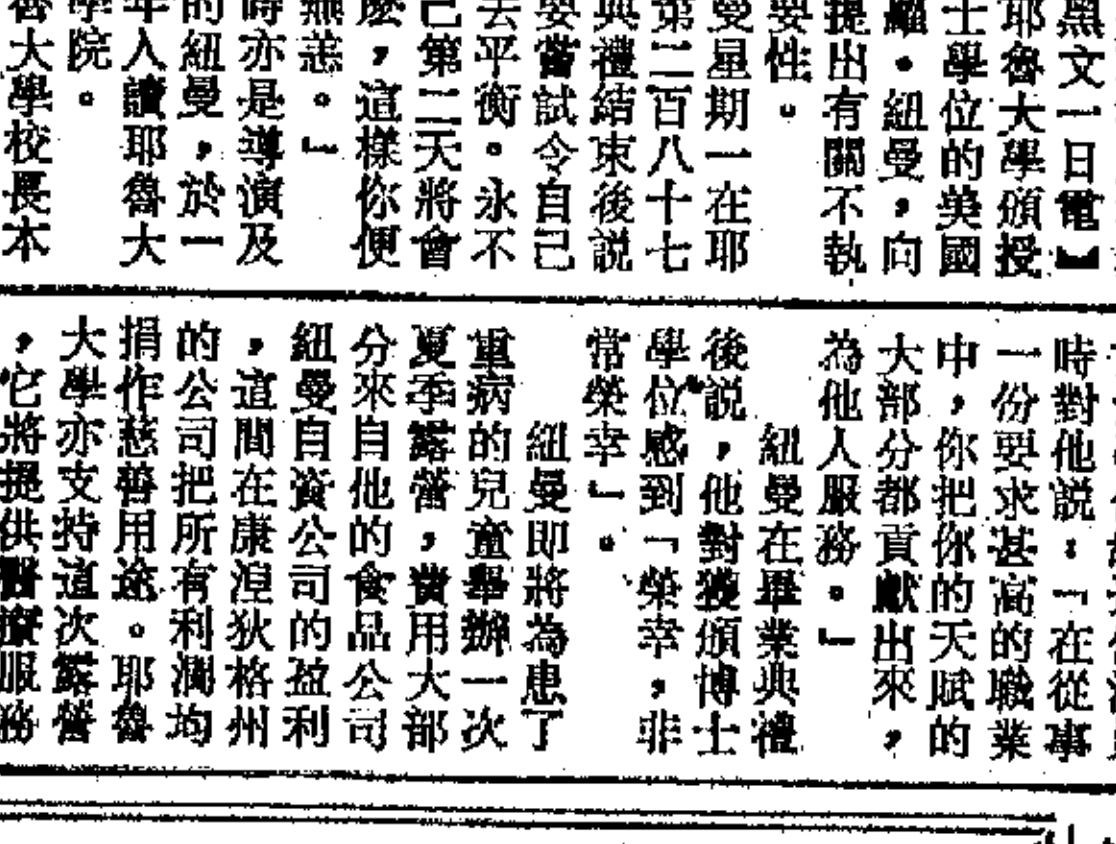 黑文一日電】
耶魯大學頒授
士學位的美國
羅・紐曼，向
提出有關不執
要性。
曼星期一在耶
第二百八十七
典禮結束後説
要嘗試令自己
去平衡。永不
己第二天將會
麼，這樣你便
無恙。」
時亦是導演及
的紐曼，於一
年入讀耶魯大
學院。
魯大學校長本
時對他説：「在從事
一份要求甚高的職業
中，你把你的天賦的
大部分都貢獻出來，
為他人服務。」
紐曼在畢業典禮
後説，他對獲頒博士
學位感到「榮幸，非
常榮幸」。
紐曼即將為患了
重病的兒童舉辦一次
夏季露營，費用大部
分來自他的食品公司
紐曼自資公司的盈利
，這間在康湼狄格州
的公司把所有利潤均
捐作慈善用途。耶魯
大學亦支持這次露營
，它將提供醫療服務